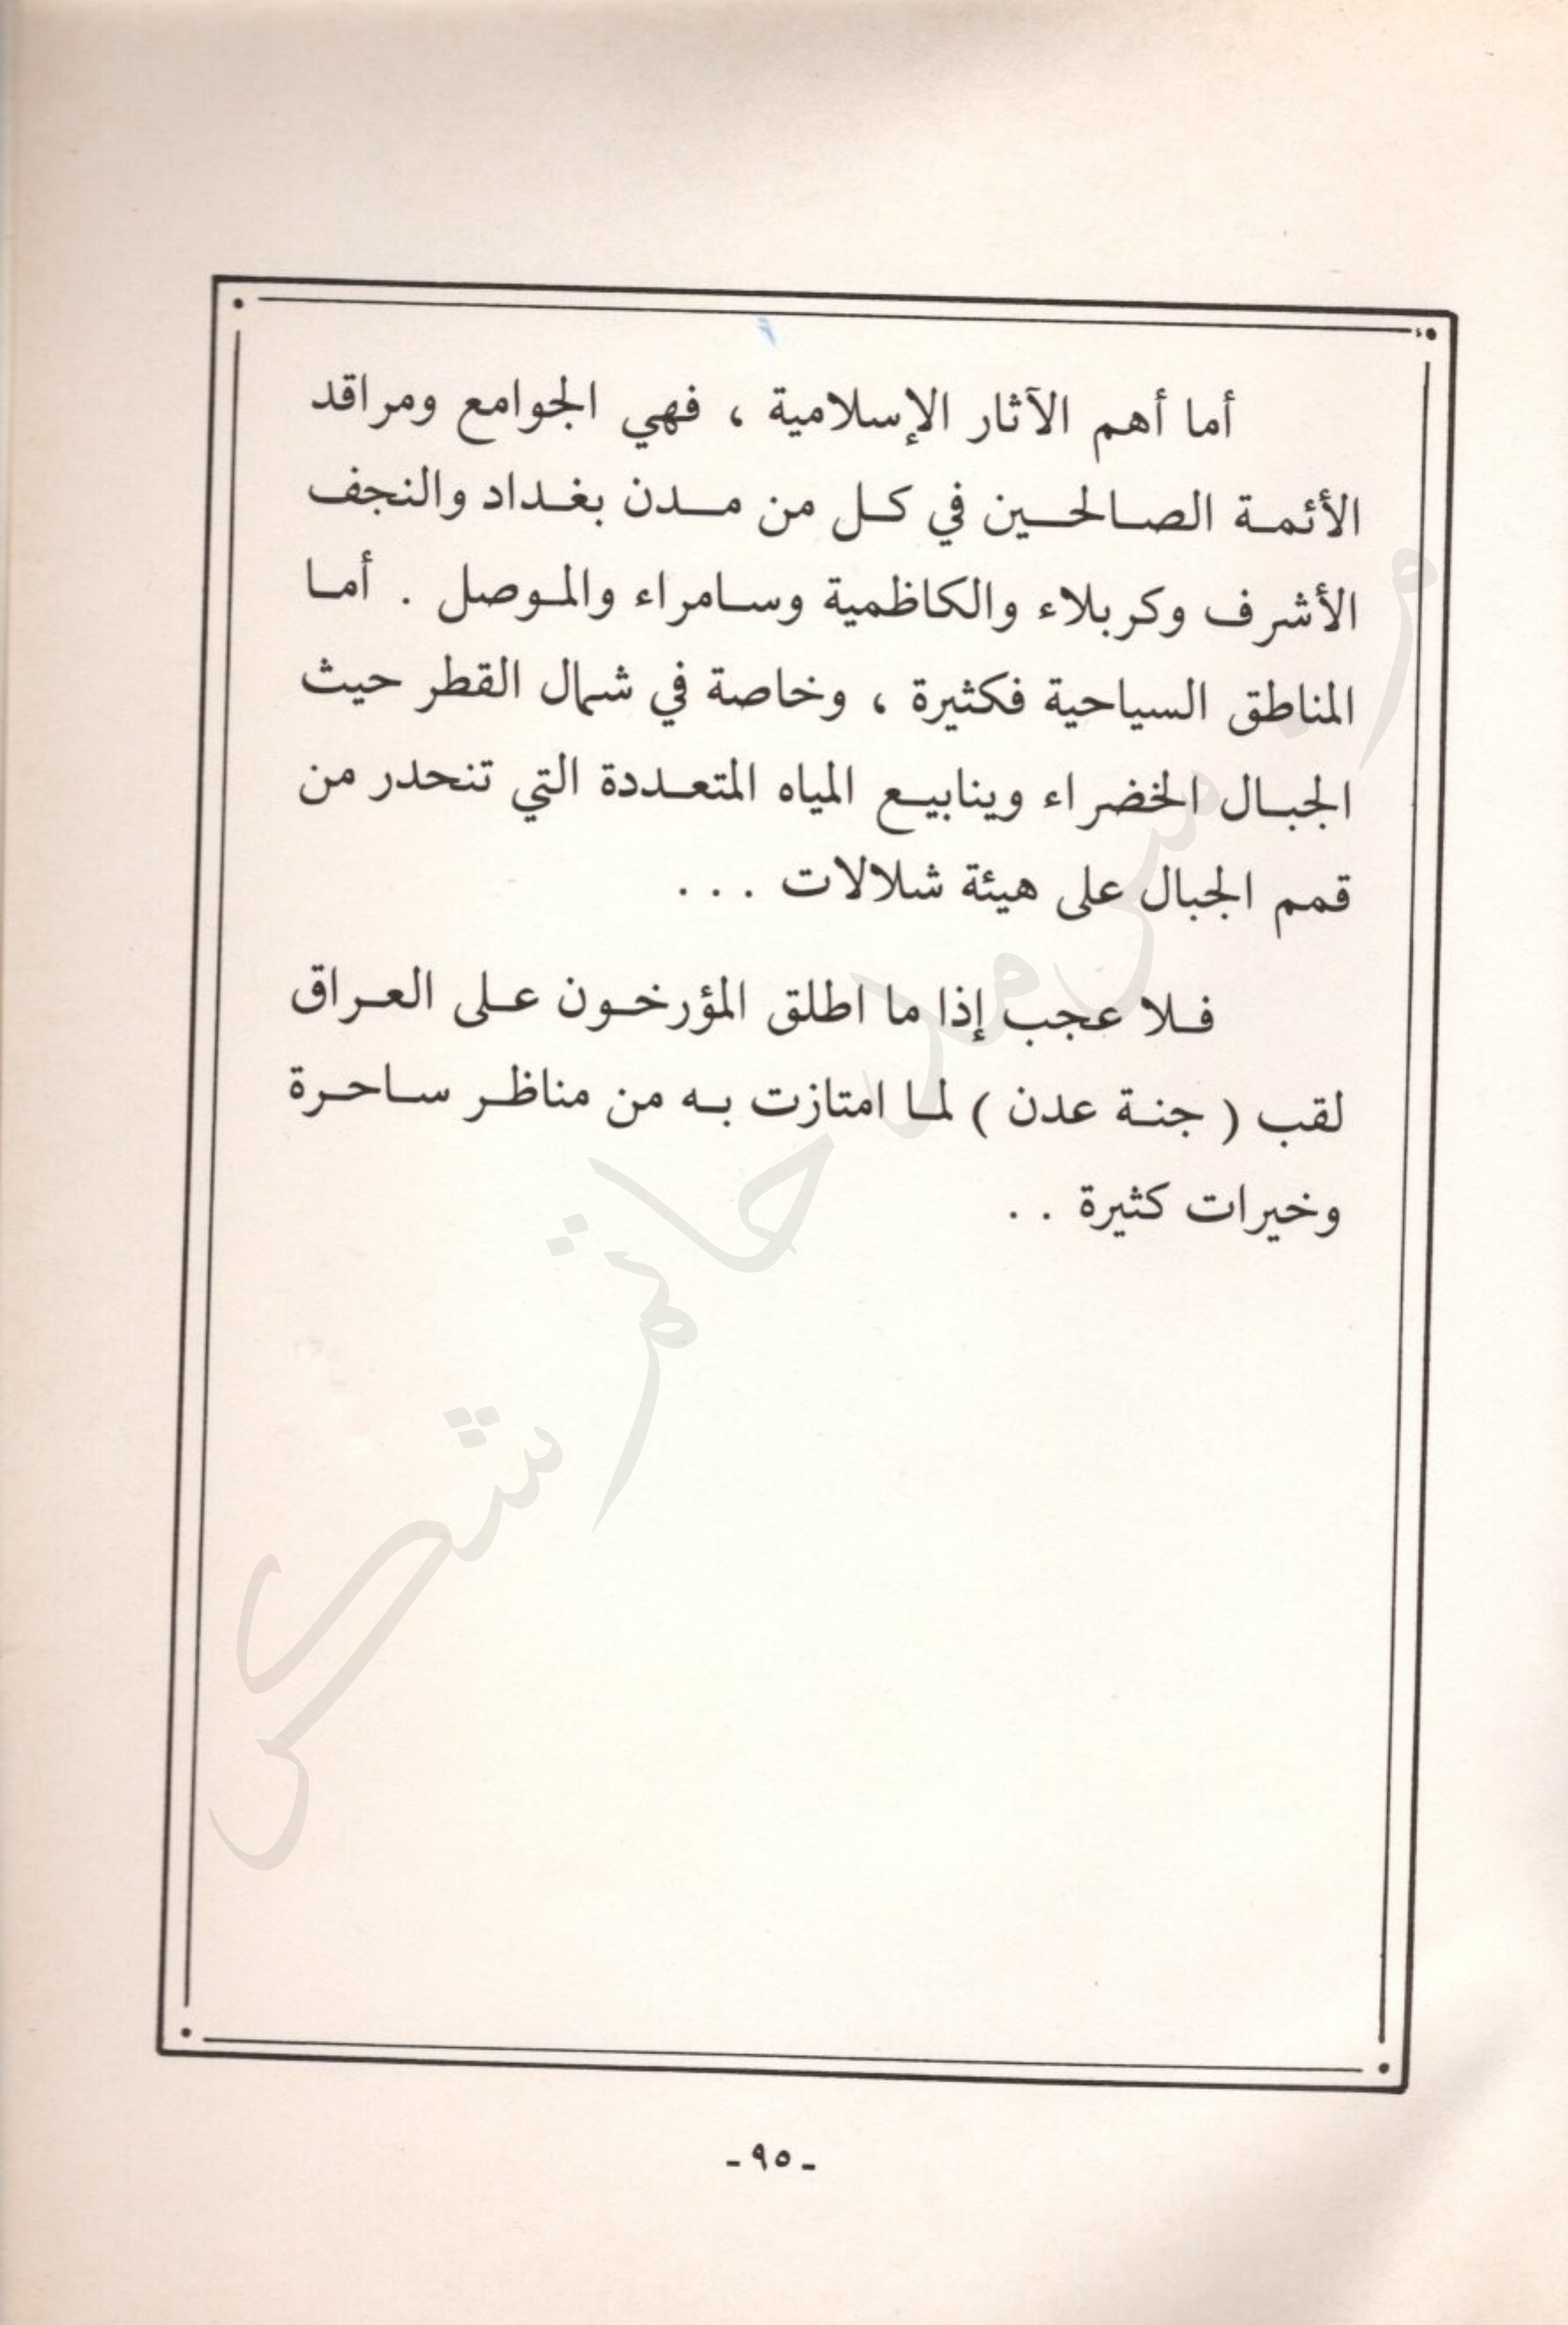 أما أهم الآثار الإسلامية ، فهي الجوامع ومراقد
الأئمة الصالحين في كل من مدن بغداد والنجف
الأشرف وكربلاء والكاظمية وسامراء والموصل . أما
المناطق السياحية فكثيرة ، وخاصة في شمال القطر حيث
الجبال الخضراء وينابيع المياه المتعددة التي تنحدر من
قمم الجبال على هيئة شلالات . . .
فلا عجب إذا ما اطلق المؤرخون على العراق
لقب ( جنة عدن ) لما امتازت به من مناظر ساحرة
وخيرات كثيرة . .
- ٩٥ -